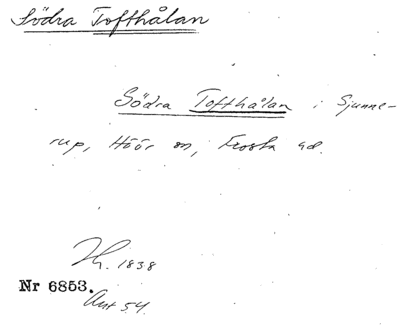 Södra Tofthålan
Södra Tofthålan i Sjunne-
rup, Höör sn, Frosta hd.
Th. 1838
Nr 6853.
Ant 54.